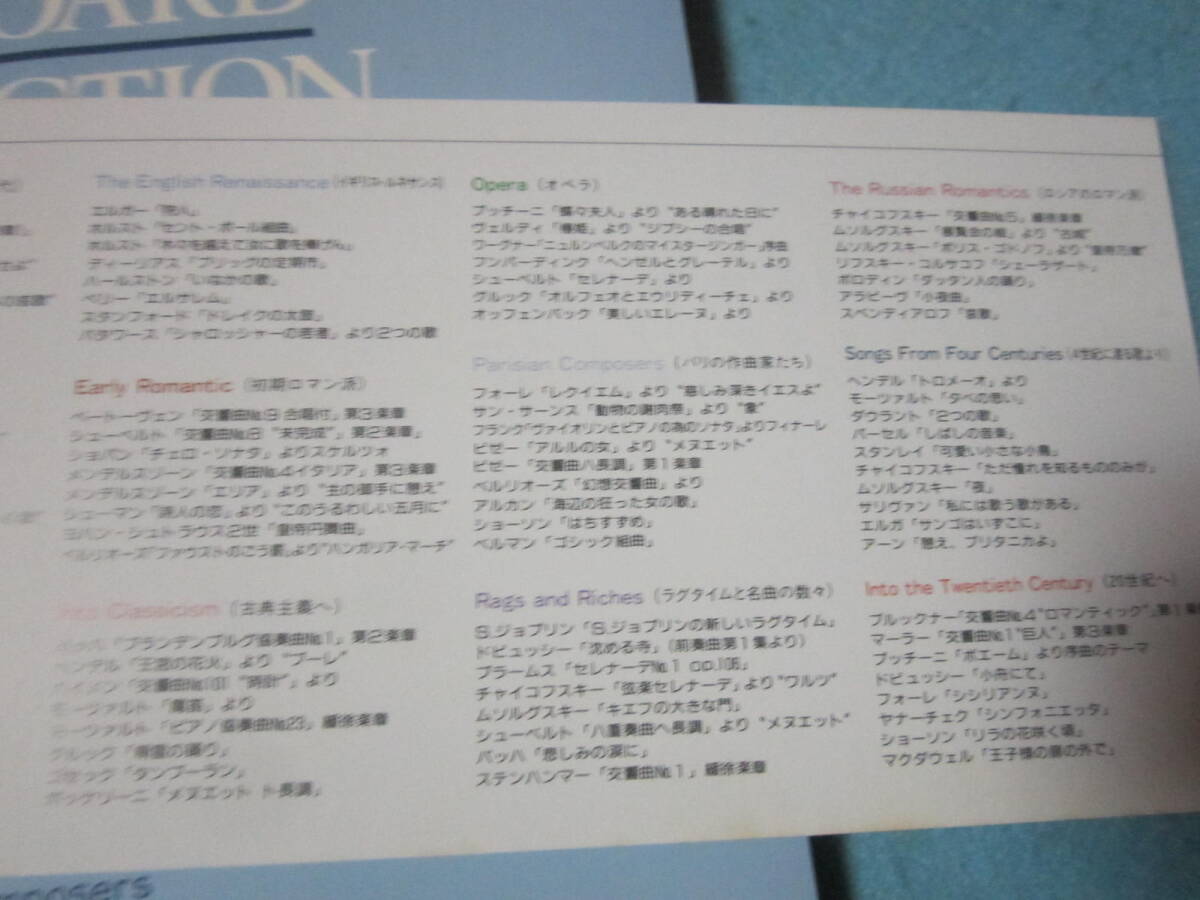 OARD
CTION
The English Renaissance (イギリス・ルネサンス)
エルガー
ホルスト「セント・ポール組曲」
ホルスト
ディーリアス「ブリッグの定期市」
ハールストン「いなかの歌」
ペリー「エルサレム」
スタンフォード「ドレイクの太鼓」
バタワース「シャロップシャーの若者」より2つの歌
Early Romantic (初期ロマン派)
ベートーヴェン「交響曲№9 合唱付」第3楽章
シューベルト「交響曲№8 "未完成"」第2楽章」
ショパン「チェロ・ソナタ」よりスケルツォ
メンデルスゾーン「交響曲№4イタリア」第3楽章
メンデルスゾーン「エリア」より "主の御手に憩え"
シューマン「詩人の恋」より"このうるわしい五月に"
ヨハン・シュトラウス2世「皇帝円舞曲」
ベルリオーズ「ファウストのごう罰」より"ハンガリア・マーチ"
Classicism (古典主義へ)
「ブランデンブルグ協奏曲№1」第2楽章
ヘンデル「王宮の花火」より "ブーレ"
ハイドン「交響曲№101 "時計"」より
モーツァルト「魔笛」より
モーツァルト「ピアノ協奏曲№23」緩徐楽章
グルック「精霊の踊り」
ゴセック「タンブーラン」
ボッケリーニ「メヌエット ト長調」
Opera (オペラ)
プッチーニ「蝶々夫人」より "ある晴れた日に"
ヴェルディ「椿姫」より "ジプシーの合唱"
ワーグナー「ニュルンベルクのマイスタージンガー」序曲
フンパーディンク「ヘンゼルとグレーテル」より
シューベルト「セレナーデ」より
グルック「オルフェオとエウリディーチェ」より
オッフェンバック「美しいエレーヌ」より
Parisian Composers (パリの作曲家たち)
フォーレ「レクイエム」より "慈しみ深きイエスよ"
サン・サーンス「動物の謝肉祭」より "象"
フランク「ヴァイオリンとピアノの為のソナタ」よりフィナーレ
ビゼー「アルルの女」より "メヌエット"
ビゼー「交響曲ハ長調」第1楽章
ベルリオーズ「幻想交響曲」より
アルカン「海辺の狂った女の歌」
ショーソン「はちすずめ」
ベルマン「ゴシック組曲」
Rags and Riches (ラグタイムと名曲の数々)
S.ジョプリン「S.ジョプリンの新しいラグタイム」
ドビュッシー「沈める寺」(前奏曲第1集より)
ブラームス「セレナーデ№1 op.106」
チャイコフスキー「弦楽セレナーデ」より "ワルツ"
ムソルグスキー「キエフの大きな門」
シューベルト「八重奏曲ヘ長調」より "メヌエット"
バッハ「悲しみの涙に」
ステンハンマー「交響曲№1」緩徐楽章
The Russian Romantics (ロシアのロマン派)
チャイコフスキー「交響曲№5」緩徐楽章
ムソルグスキー「展覧会の絵」より "古城"
ムソルグスキー「ボリス・ゴドノフ」より
リフスキー・コルサコフ「シェーラザード」
ボロディン「ダッタン人の踊り」
アラビーヴ「小夜曲」
スペンディアロフ「哀歌」
Songs From Four Centuries (4世紀に渡る歌より)
ヘンデル「トロメーオ」より
モーツァルト「夕べの想い」
ダウラント「2つの歌」
パーセル「しばしの音楽」
スタンレイ「可愛い小さな小鳥」
チャイコフスキー「ただ憧れを知るもののみが」
ムソルグスキー「夜」
サリヴァン「私には歌う歌がある」
エルガ「サンゴはいずこに」
アーン「憩え、ブリタニカよ」
Into the Twentieth Century (20世紀へ)
ブルックナー「交響曲№4"ロマンティック"」第1楽
マーラー「交響曲№1"巨人"」第3楽章
プッチーニ「ボエーム」より序曲のテーマ
ドビュッシー「小舟にて」
フォーレ「シシリアンヌ」
ヤナーチェク「シンフォニエッタ」
ショーソン「リラの花咲く頃」
マクダウェル「王子様の扉の外で」
mposers